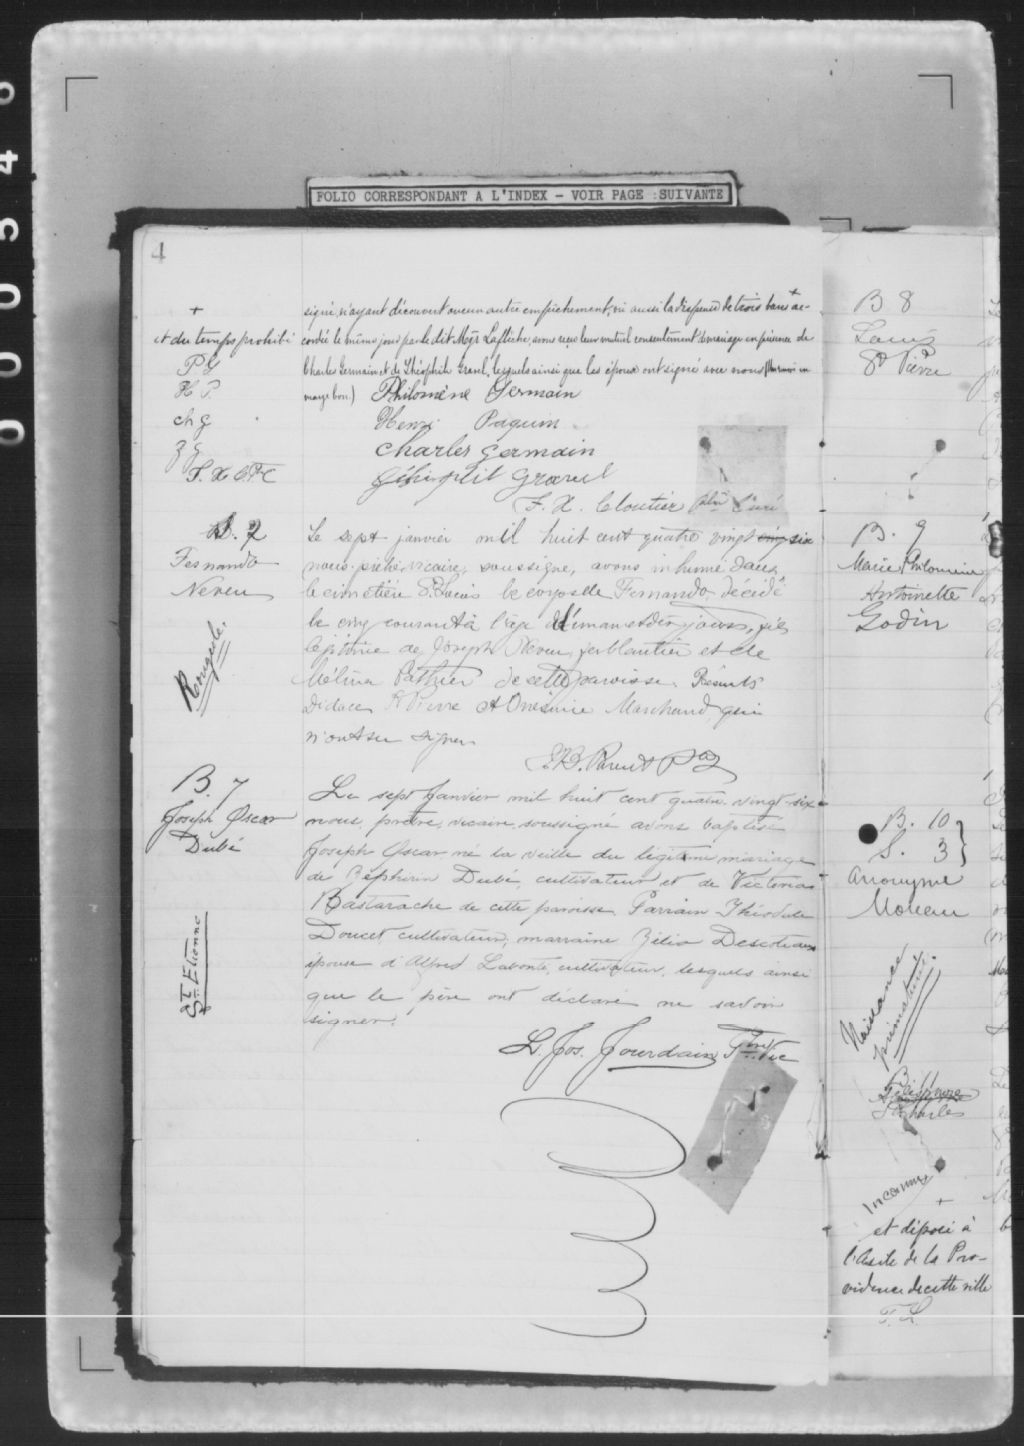 FOLIO CORRESPONDANT A L'INDEX - VOIR PAGE SUIVANTE
000346
4
signé, n'ayant découvert aucun autre empêchement, vu aussi la dispense de trois bans + ac-
cordée le même jour par le dit Mgr Laflèche, avons reçu leur mutuel consentement de mariage en présence de
Charles Germain et de Théophile Gravel, lesquels ainsi que les époux ont signé avec nous
marge bon.) Philomène Germain
Henri Paquin
Charles Germain
Gravel
F. X. Cloutier Ptre Curé
+
et du temps prohibé
PG
H P.
ch g
F. X C. P C
S. 2
Fernando
Neveu
Rougeole.
Le sept janvier mil huit cent quatre vingt cinq six
nous prêtre vicaire, soussigné, avons inhumé dans
le cimetière St Louis le corps de Fernando, décédé
le cinq courant à l'âge d'un an et dix jours, fils
légitime de Joseph Neveu, ferblantier et de
Mélina de cette paroisse. Présents
Didace St Pierre et Onésime Marchand, qui
n'ont su signer
Parent
B. 7
Joseph Oscar
Dubé
St Etienne
Le sept Janvier mil huit cent quatre-vingt-six
nous, prêtre, vicaire, soussigné avons baptisé
Joseph Oscar, né la veille du légitime mariage
de Zéphirin Dubé, cultivateur et de Victoria
Bastarache de cette paroisse. Parrain Théodule
Doucet, cultivateur, marraine Zélia Descoteaux
épouse d'Alfred Labonté, cultivateur, lesquels ainsi
que le père ont déclaré ne savoir
signer.
L. Jos. Jourdain Ptre Vic
B 8
Louis
St Pierre
B. 9
Marie Philomène
Antoinette
Godin
B. 10
S. 3
Anonyme
Moreau
Naissance
prématurée.
B. 11
Charles
Inconnu
+
et déposé à
l'Asile de la Pro-
vidence de cette ville
F. L.